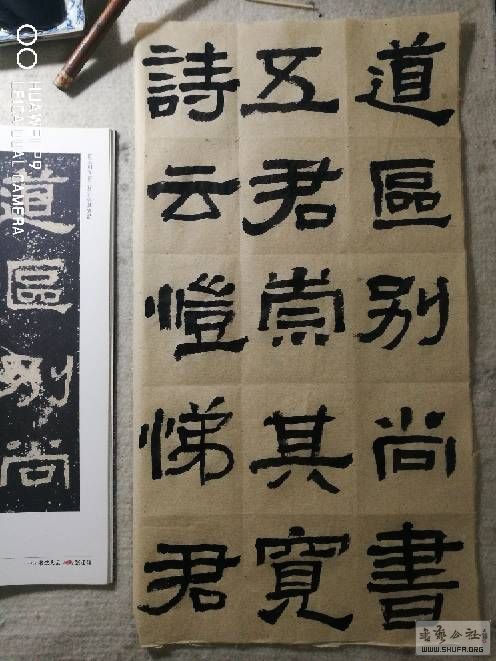 道區别尚書
五君崇其寬
詩云愷悌君
道區别尚
HUAWEI P9
LEICA DUAL CAMERA
书艺公社
WWW.SHUFA.ORG